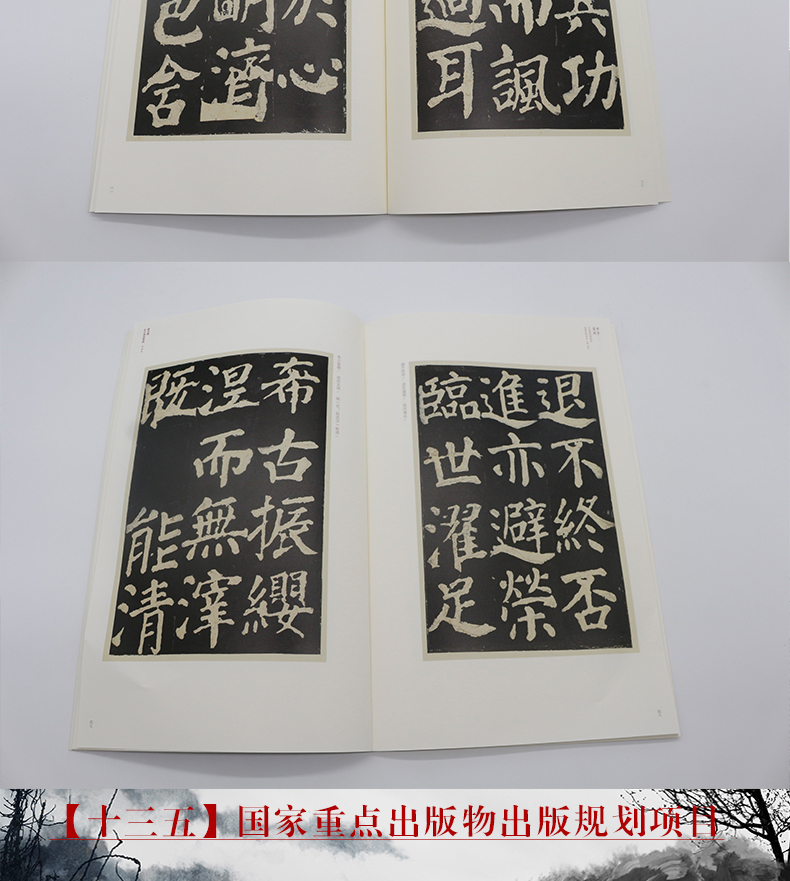 其功
而諷
過耳
於心
明濟
包含
退不終否
進亦避榮
臨世濯足
希古振纓
涅而無滓
既能清
【十三五】国家重点出版物出版规划项目